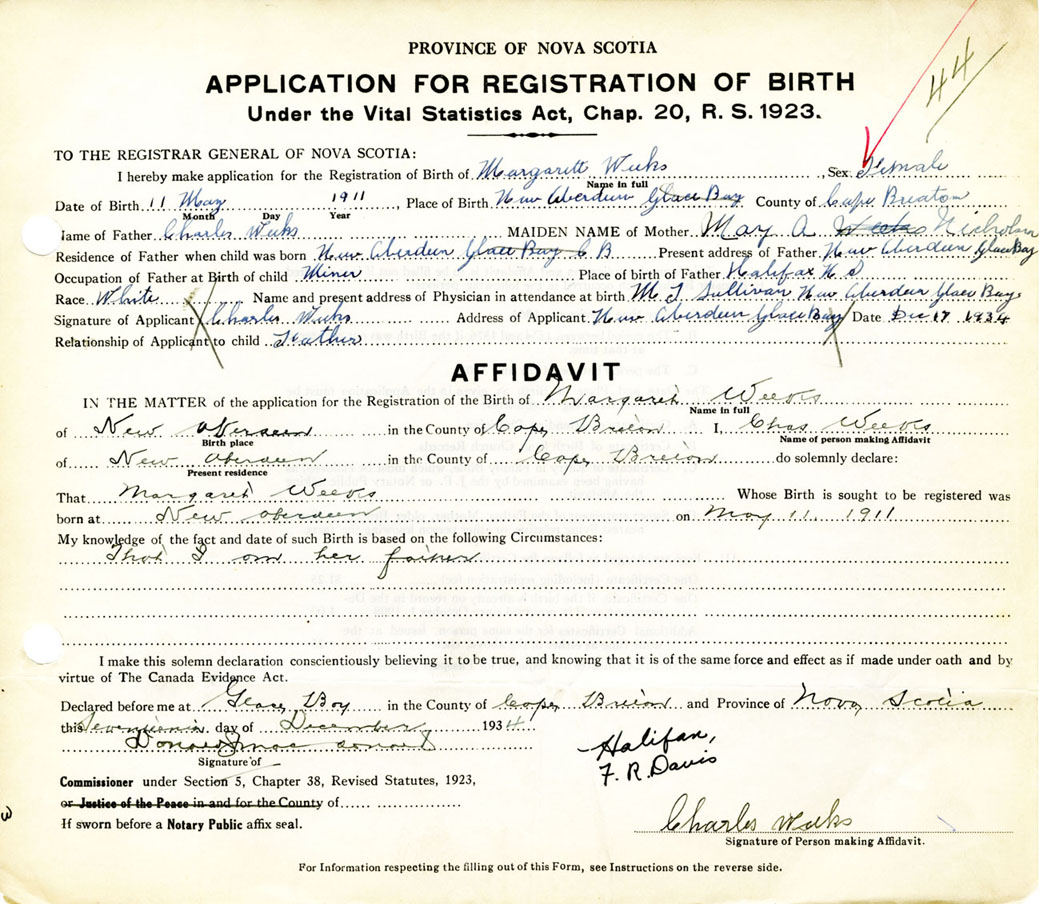 44
PROVINCE OF NOVA SCOTIA
APPLICATION FOR REGISTRATION OF BIRTH
Under the Vital Statistics Act, Chap. 20, R. S. 1923.
TO THE REGISTRAR GENERAL OF NOVA SCOTIA:
I hereby make application for the Registration of Birth of Margarett Weeks, Sex Female
Name in full
Date of Birth 11 May 1911, Place of Birth New Aberdeen Glace Bay County of Cape Breaton
Month Day Year
Name of Father Charles Weeks MAIDEN NAME of Mother May A Weeks Nicholson
Residence of Father when child was born New Aberdeen Glace Bay C B Present address of Father New Aberdeen Glace Bay
Occupation of Father at Birth of child Miner Place of birth of Father Halifax N S
Race White Name and present address of Physician in attendance at birth M T Sullivan New Aberdeen Glace Bay
Signature of Applicant Charles Weeks Address of Applicant New Aberdeen Glace Bay Date Dec 17 1934
Relationship of Applicant to child Father
AFFIDAVIT
IN THE MATTER of the application for the Registration of the Birth of Margaret Weeks
Name in full
of New Aberdeen in the County of Cape Breton I, Chas Weeks
Birth place Name of person making Affidavit
of New Aberdeen in the County of Cape Breton do solemnly declare:
Present residence
That Margaret Weeks Whose Birth is sought to be registered was
born at New Aberdeen on May 11, 1911
My knowledge of the fact and date of such Birth is based on the following Circumstances:
That I am her father
I make this solemn declaration conscientiously believing it to be true, and knowing that it is of the same force and effect as if made under oath and by
virtue of The Canada Evidence Act.
Declared before me at Glace Bay in the County of Cape Breton and Province of Nova Scotia
this Seventeenth day of December 1934
Donald Mac Donald
Signature of
Halifax,
F. R. Davis
Commissioner under Section 5, Chapter 38, Revised Statutes, 1923,
or Justice of the Peace in and for the County of
If sworn before a Notary Public affix seal.
Charles Weeks
Signature of Person making Affidavit.
For Information respecting the filling out of this Form, see Instructions on the reverse side.